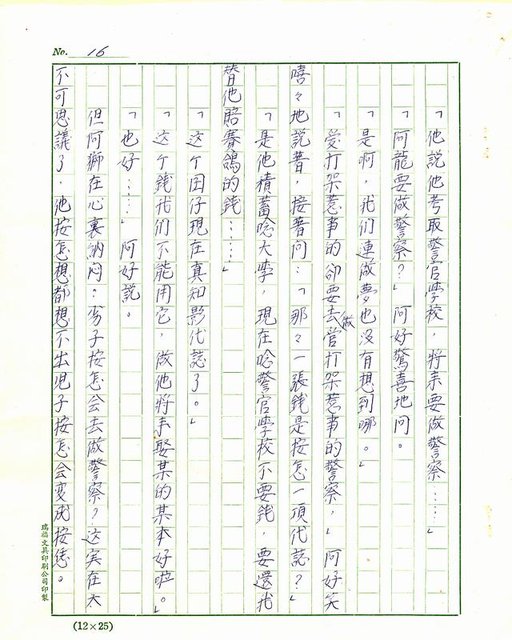 No. 16
「他說他考取警官學校，將來要做警察……」
「阿龍要做警察？」阿好驚喜地问。
「是啊，我们連做夢也沒有想到哪。」
「愛打架惹事的卻要去做管打架惹事的警察，」阿好笑
嘻々地説着，接着问：「那々一張錢是按怎一項代誌？」
「是他積蓄唸大學，現在唸警官學校不要錢，要還我
替他賠賽鴿的錢……」
「这个囝仔現在真知影代誌了。」
「这个錢我们不能用它，做他將來娶某的某本好啦。」
「也好……」阿好說。
但阿獅在心裏納闷：歹子按怎会去做警察？这实在太
不可思議了，他按怎想都想不出児子按怎会变成按恁。
(12×25)
瑞信文具印刷公司印製